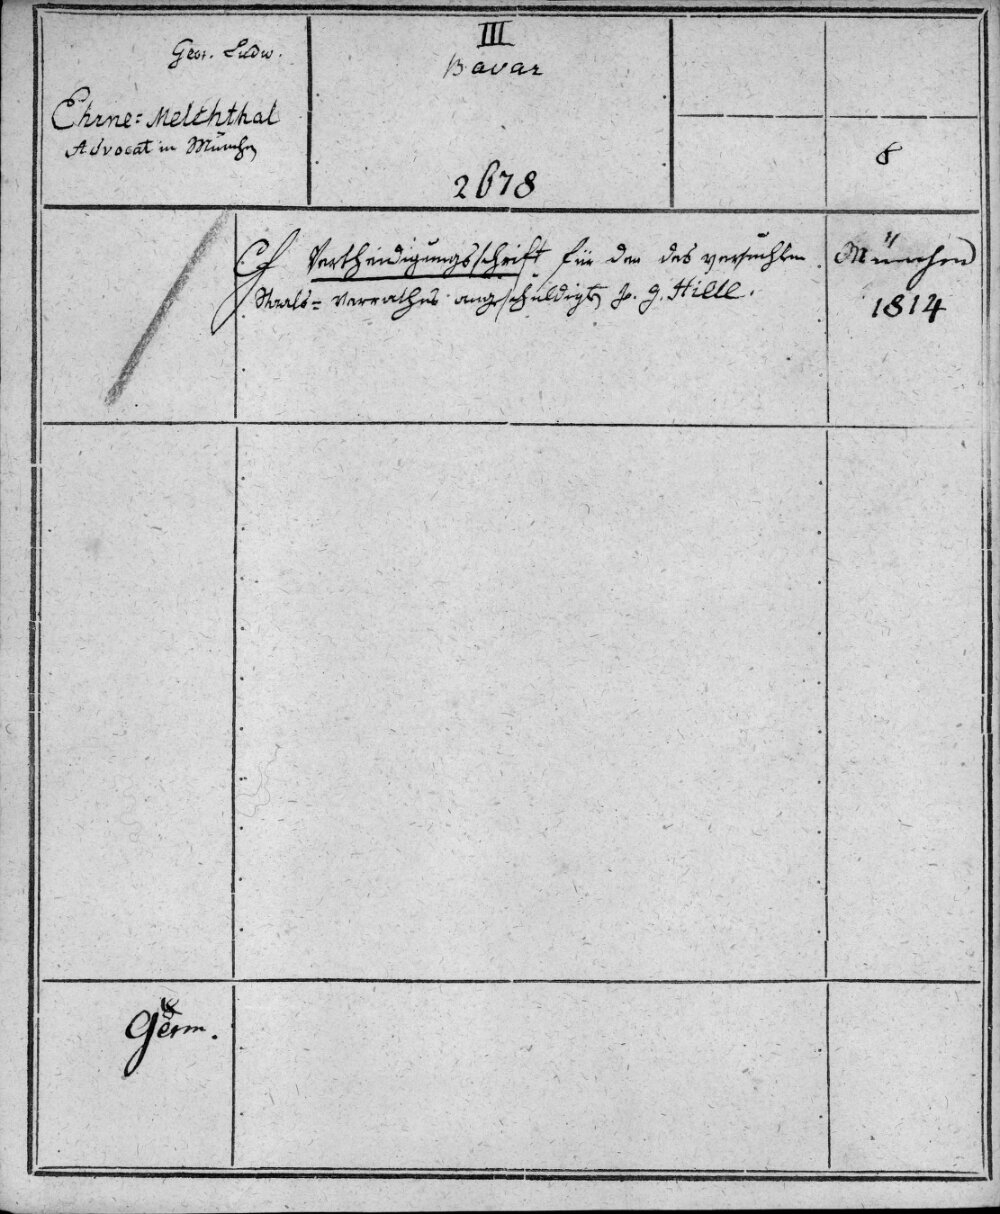 Geor. Ludw.
Ehrne=Melchthal
Advocat in München
III
Bavar
2678
8
Vertheidigungsschrift für den des versuchten
Staats=Verrathes angeschuldigten J. G. Hiltl.
München
1814
Germ.